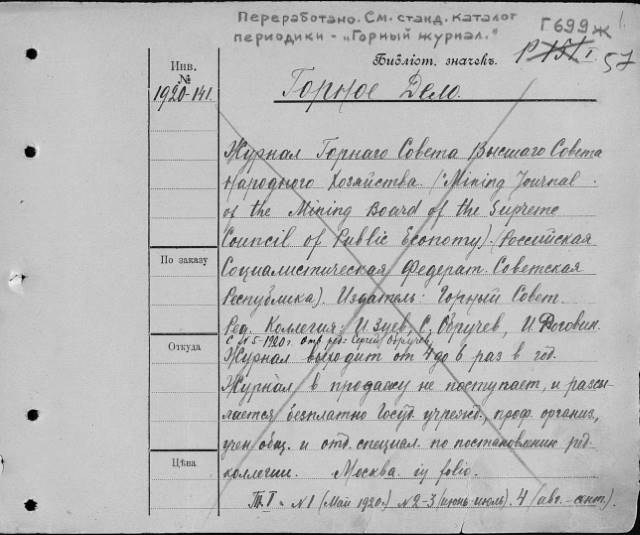 Переработано. См. станд. каталог
периодики - „Горный журнал."
Г699ж
1.
Библіот. значокъ.
57
Инв.
№
1920-141.
Горное Дело.
Журнал Горнаго Совета Высшаго Совета
Народного Хозяйства. (Mining Journal
of the Mining Board of the Supreme
Council of Public Economy). (Российская
Социалистическая Федерат. Советская
Республика). Издатель: Горный Совет.
Ред. Коллегия: И. Зуев, С. Обручев, И. Роговин.
С №5-1920г. отв. ред: Сергей Обручев.
Журнал выходит от 4 до 6 раз в год.
Журнал в продажу не поступает, и разсы-
лается безплатно Госуд. учрежд., проф. организ,
учен. общ. и отд. специал. по постановлению ред.
коллегии. Москва. in folio.
Т. I - №1 (Май 1920г.) №2-3 (июнь-июль). 4 (авг.-сент.).
По заказу
Откуда
Цѣна